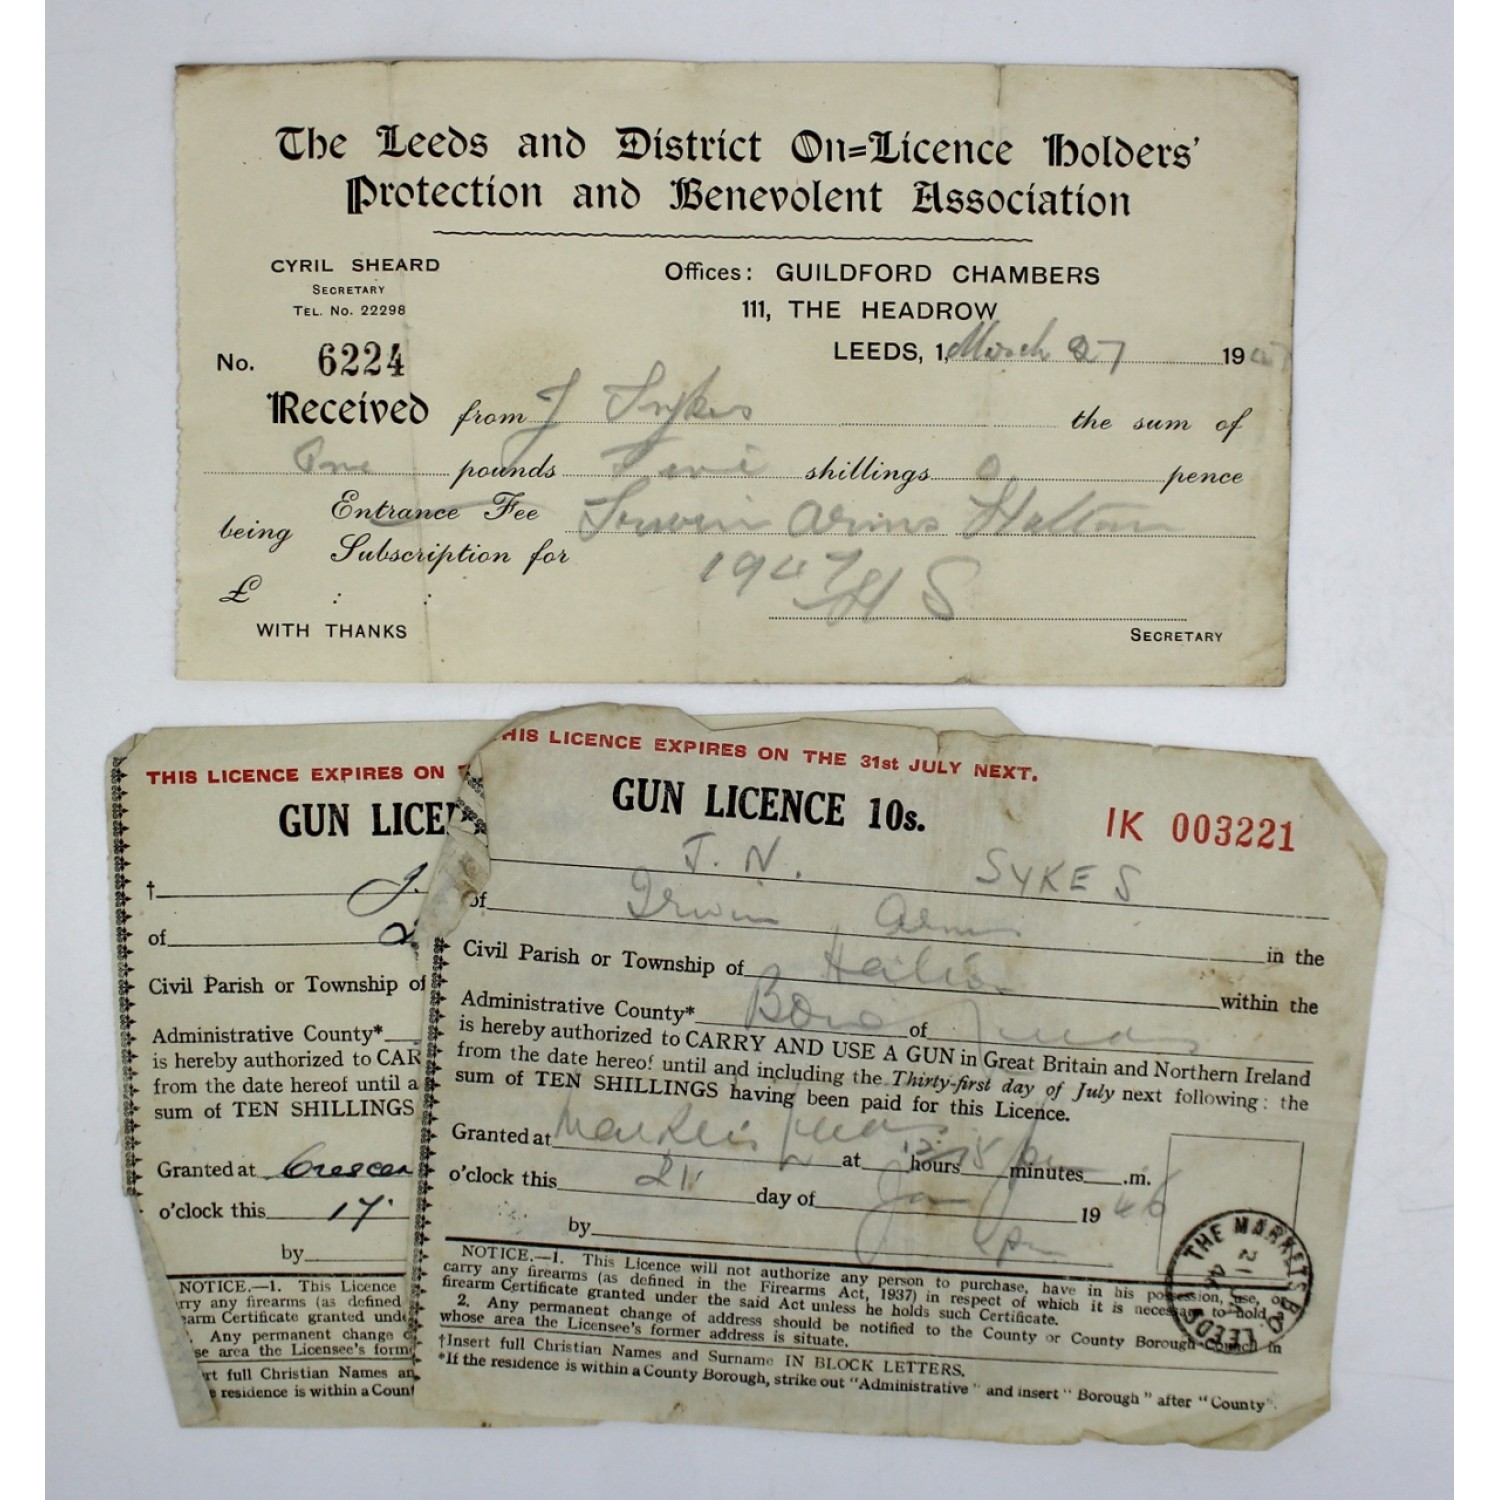 The Leeds and District On=Licence Holders'
Protection and Benevolent Association
CYRIL SHEARD
SECRETARY
TEL. No. 22298
Offices: GUILDFORD CHAMBERS
111, THE HEADROW
LEEDS, 1, March 27 1947
No. 6224
Received from J Sykes the sum of
One pounds Five shillings 0 pence
being Entrance Fee
Subscription for
Irwin Arms Halton
1947
£ : :
HS
WITH THANKS
SECRETARY
THIS LICENCE EXPIRES ON
GUN LICE
† J.
of
Civil Parish or Township of
Administrative County*
is hereby authorized to CAR
from the date hereof until a
sum of TEN SHILLINGS
Granted at Crescen
o'clock this 17
by
NOTICE.—1. This Licence
rry any firearms (as defined
earm Certificate granted unde
. Any permanent change o
se area the Licensee's form
rt full Christian Names an
e residence is within a Count
HIS LICENCE EXPIRES ON THE 31st JULY NEXT.
GUN LICENCE 10s.
IK 003221
J. N. SYKES
of Irwin Arms in the
Civil Parish or Township of Halton within the
Administrative County* Boro of Leeds
is hereby authorized to CARRY AND USE A GUN in Great Britain and Northern Ireland
from the date hereof until and including the Thirty-first day of July next following: the
sum of TEN SHILLINGS having been paid for this Licence.
Granted at Markets Leeds at 12 hours 15 minutes .m.
o'clock this 21 day of Jan 1946
by
NOTICE.—1. This Licence will not authorize any person to purchase, have in his possession, use, or
carry any firearms (as defined in the Firearms Act, 1937) in respect of which it is necessary to hold a
firearm Certificate granted under the said Act unless he holds such Certificate.
2. Any permanent change of address should be notified to the County or County Borough Council in
whose area the Licensee's former address is situate.
†Insert full Christian Names and Surname IN BLOCK LETTERS.
*If the residence is within a County Borough, strike out "Administrative" and insert "Borough" after "County".
THE MARKETS B.O.
LEEDS